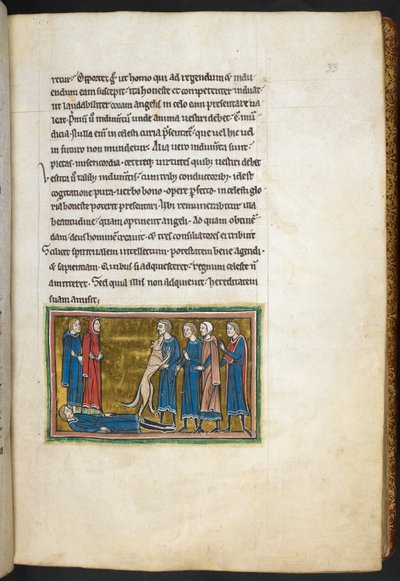 38
retur. Oportet g̃ ut homo qui ad regendum & indu
endum eam suscepit. ita honeste et competenter induat
ut laudabiliter coram angelis in celo eam presentare va
leat. indumentum unde anima vestiri debet. ẽ mu
dicia. nulla enĩ in celesti curia p̃sentat̃ que vel hic vel
in futuro non mundetur. Alia vero indumẽta sunt
pietas. misericordia. cetereq; virtutes quib; vestiri debet
vestita talib; indumẽtis. cum trib; conductorib; id est
cogitatione pura. verbo bono. opere p̃fecto. in celesti glo
ria honeste poterit presentari. ibi remunerabitur illa
beatitudine quam optinent angeli. Ad quam obtinẽ
dam deus hominem creavit. & tres consiliatores ei tribuit
Scilicet spiritualem intellectum. potestatem bene agendi.
& sapientiam. Quibus si adquiesceret. regnum celeste ñ
amitteret. Sed quia illis non adquievit. hereditatem
suam amisit;